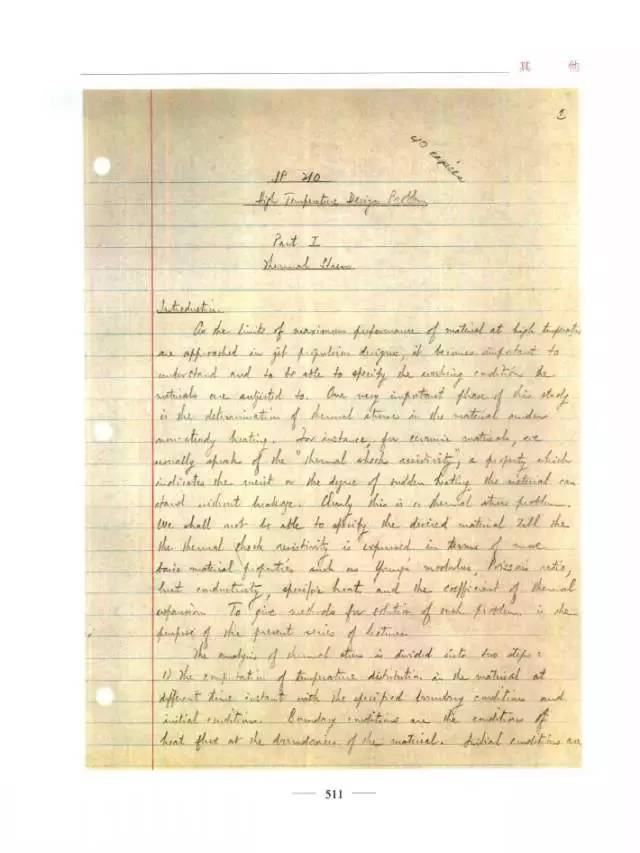 其 他
2
40 copies
JP 210
High Temperature Design Problem
Part I
Thermal Stress
Introduction
As the limits of maximum performance of material at high temperature
are approached in jet propulsion designs, it becomes important to
understand and to be able to specify the working condition the
materials are subjected to. One very important phase of this study
is the determination of thermal stress in the material under
non-steady heating. For instance, for ceramic materials, we
usually speak of the "thermal shock resistivity", a property which
indicates the merit or the degree of sudden heating the material can
stand without breakage. Clearly this is a thermal stress problem.
We shall not be able to specify the desired material till the
the thermal shock resistivity is expressed in terms of more
basic material properties such as Young's modulus, Poisson's ratio,
heat conductivity, specific heat, and the coefficient of thermal
expansion. To give methods for solution of such problem is the
purpose of the present series of lectures.
The analysis of thermal stress is divided into two steps:
1) The computation of temperature distribution in the material at
different time instant with the specified boundary condition and
initial condition. Boundary conditions are the conditions of
heat flux at the boundaries of the material. Initial conditions are
511